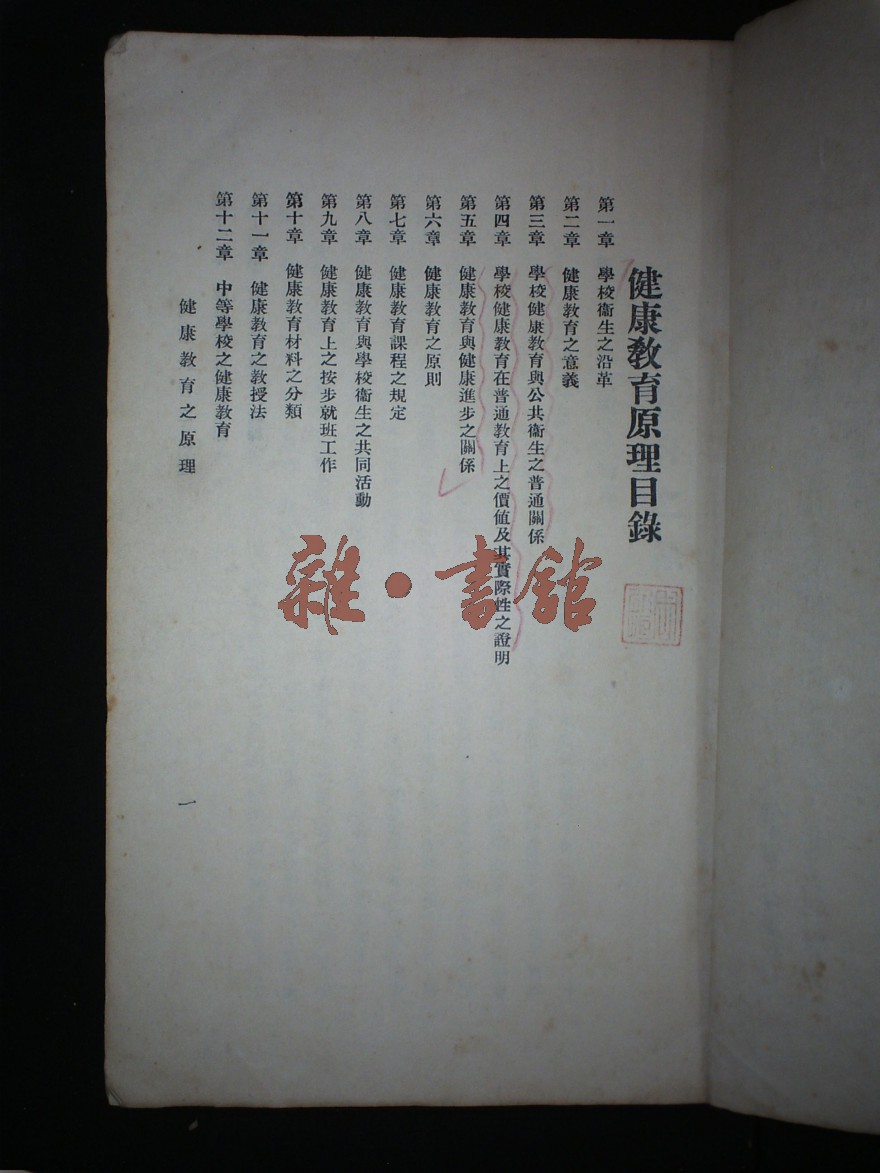 健康教育原理目錄
第一章 學校衞生之沿革
第二章 健康教育之意義
第三章 學校健康教育與公共衞生之普通關係
第四章 學校健康教育在普通教育上之價值及其實際性之證明
第五章 健康教育與健康進步之關係
第六章 健康教育之原則
第七章 健康教育課程之規定
第八章 健康教育與學校衞生之共同活動
第九章 健康教育上之按步就班工作
第十章 健康教育材料之分類
第十一章 健康教育之教授法
第十二章 中等學校之健康教育
健康教育之原理
一
雜·書館